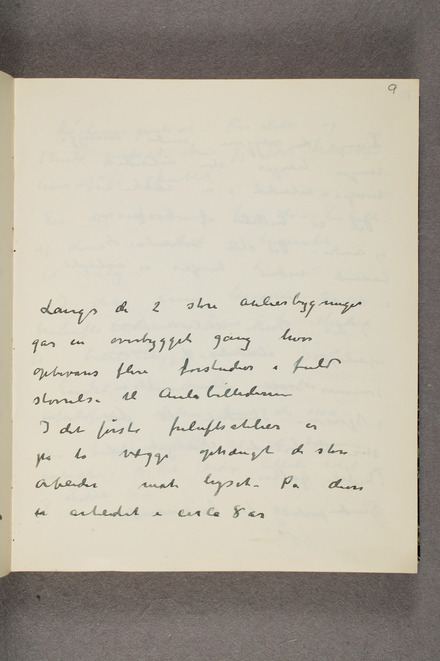 9
Langs de 2 store atelierbygninger
går en overbygget gang hvor
opbevares flere forstudier i fuld
størrelse til Aulabillederne
I det første friluftsatelier er
på to vægge ophængt de store
arbeider mot lyset. På disse
er arbeidet i circa 8 år